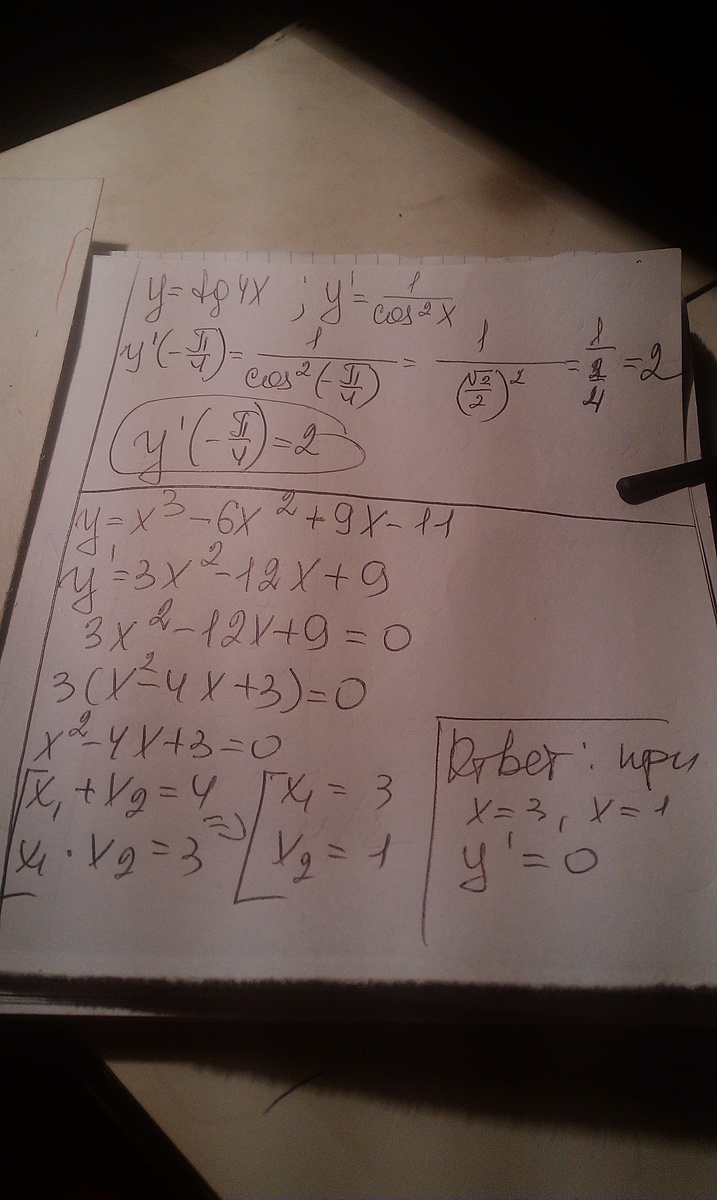 y = tg4x ; y' = 1/cos²x
y'(-π/4) = 1/cos²(-π/4) = 1/(√2/2)² = 1/(2/4) = 2
y'(-π/4) = 2
y = x³ - 6x² + 9x - 11
y' = 3x² - 12x + 9
3x² - 12x + 9 = 0
3(x² - 4x + 3) = 0
x² - 4x + 3 = 0
[x₁ + x₂ = 4
x₁ · x₂ = 3 =>
[x₁ = 3
x₂ = 1
Ответ: при
x = 3, x = 1
y' = 0